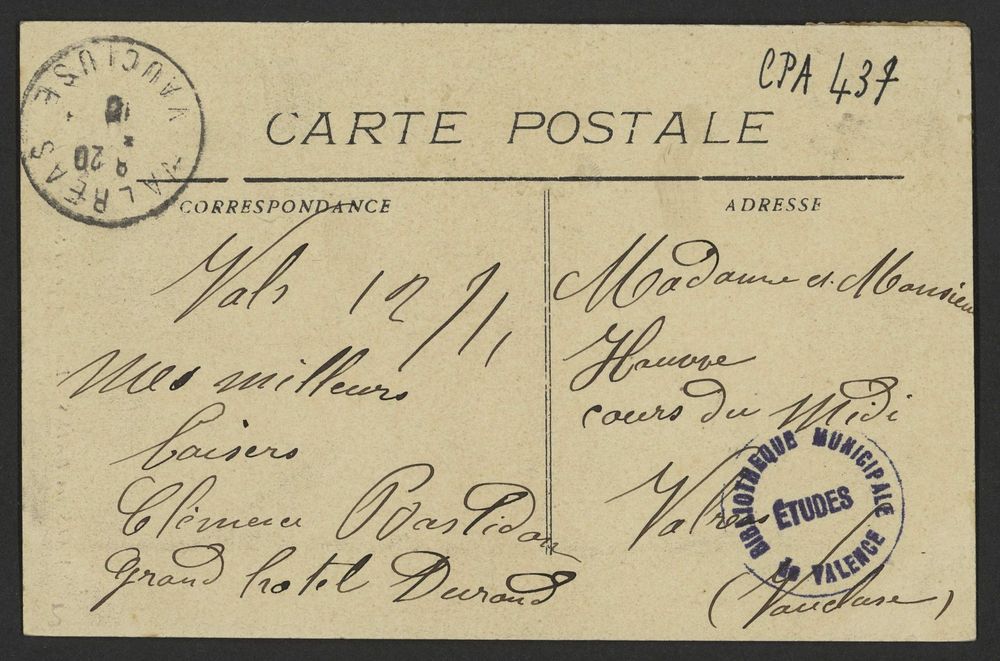 CPA 437
VALREAS
VAUCLUSE
8 20
10
CARTE POSTALE
CORRESPONDANCE
Vals 12/1,
mes milleurs
baisers
Clémence Bastidon
grand hotel Durand
ADRESSE
Madame et Monsieur
cours du Midi
Valréas
(Vaucluse)
BIBLIOTHEQUE MUNICIPALE
ÉTUDES
de VALENCE